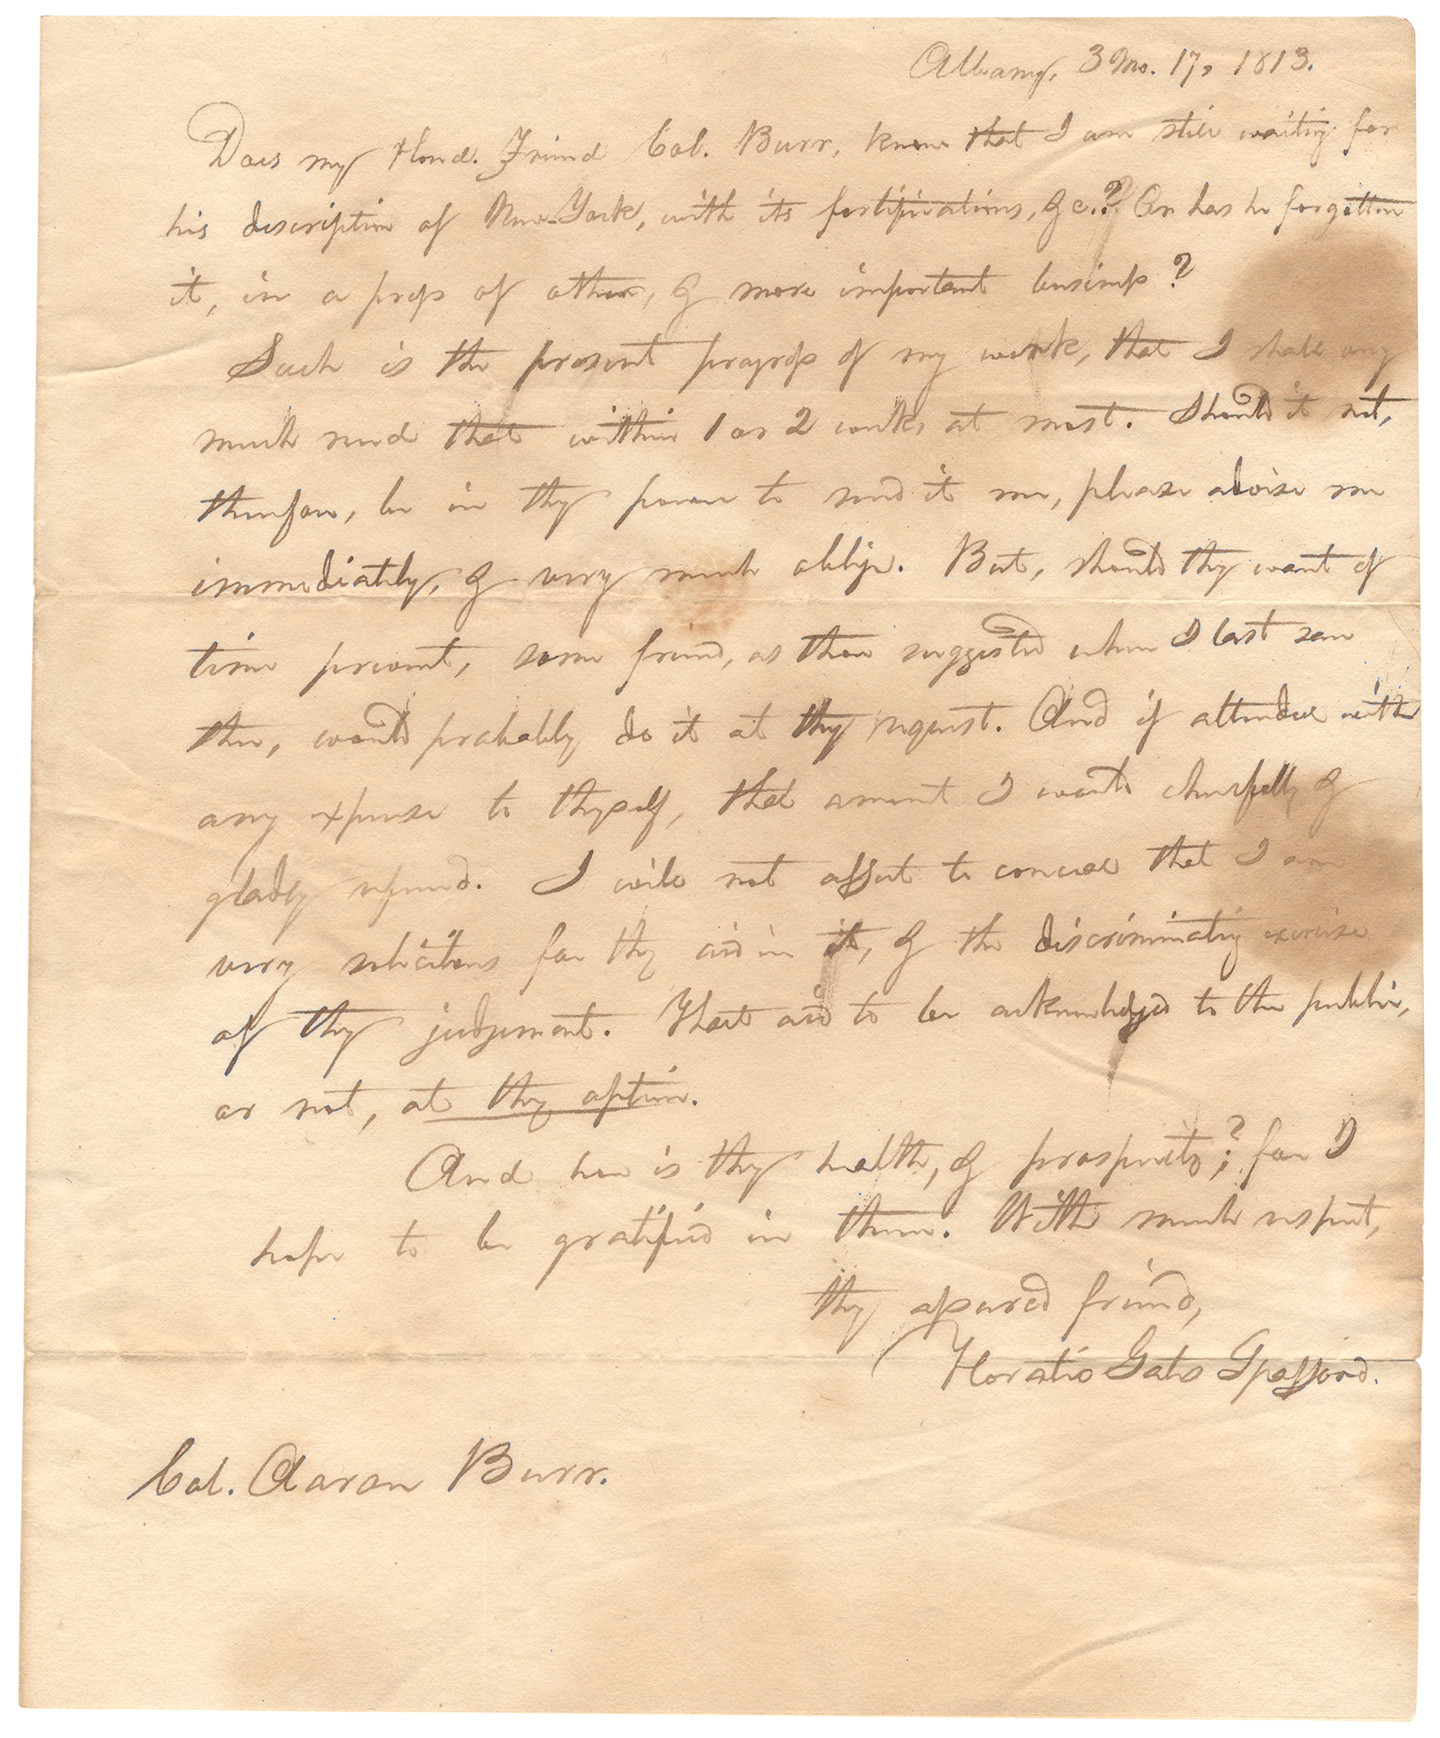 Albany, 3 Mo. 17, 1813.
Does my Hond. Friend Col. Burr, know that I am still waiting for
his description of New-York, with its fortifications, &c.? Or has he forgotten
it, in a press of other, & more important business?
Such is the present progress of my work, that I shall very
much need that within 1 or 2 weeks at most. Should it not,
therefore, be in thy power to send it me, please advise me
immediately, & very much oblige. But, should thy want of
time prevent, some friend, as thou suggested when I last saw
thee, would probably do it at thy request. And if attended with
any expense to thyself, that amount I would cheerfully &
gladly refund. I will not affect to conceal that I am
very solicitous for thy aid in it, & the discriminating exercise
of thy judgement. That aid to be acknowledged to the public,
or not, at thy option.
And how is thy health, & prospects;? for I
hope to be gratified in them. With much respect,
thy assured friend,
Horatio Gates Spafford.
Col. Aaron Burr.